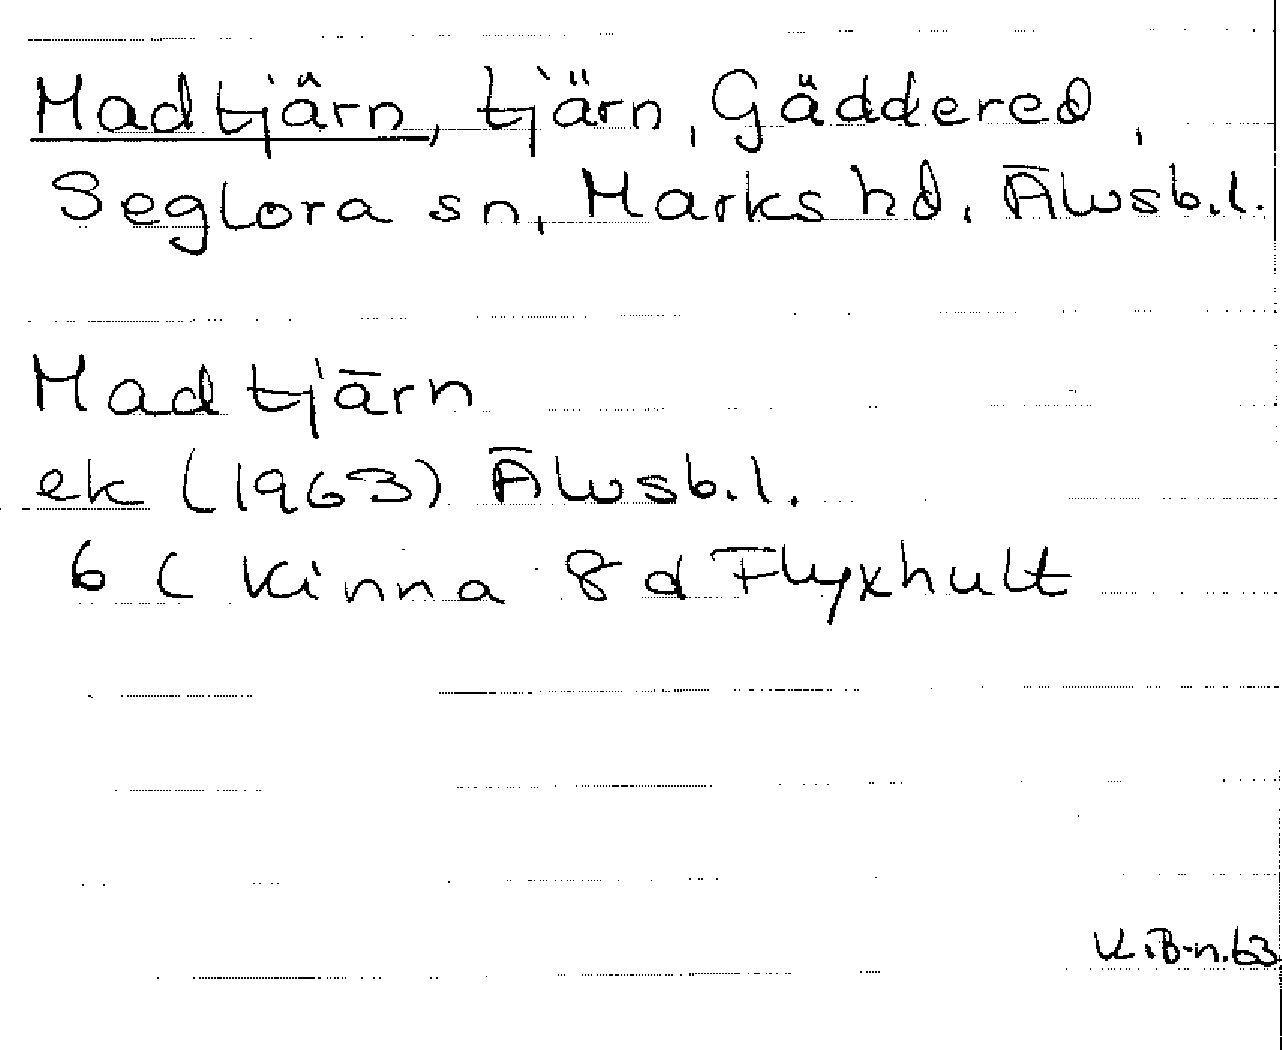 Madtjärn, tjärn, Gäddered,
Seglora sn, Marks hd. Älvsb.l.
Madtjärn
ek (1963) Älvsb.l.
6 C Kinna 8 d Flyxhult
K.B-n.63